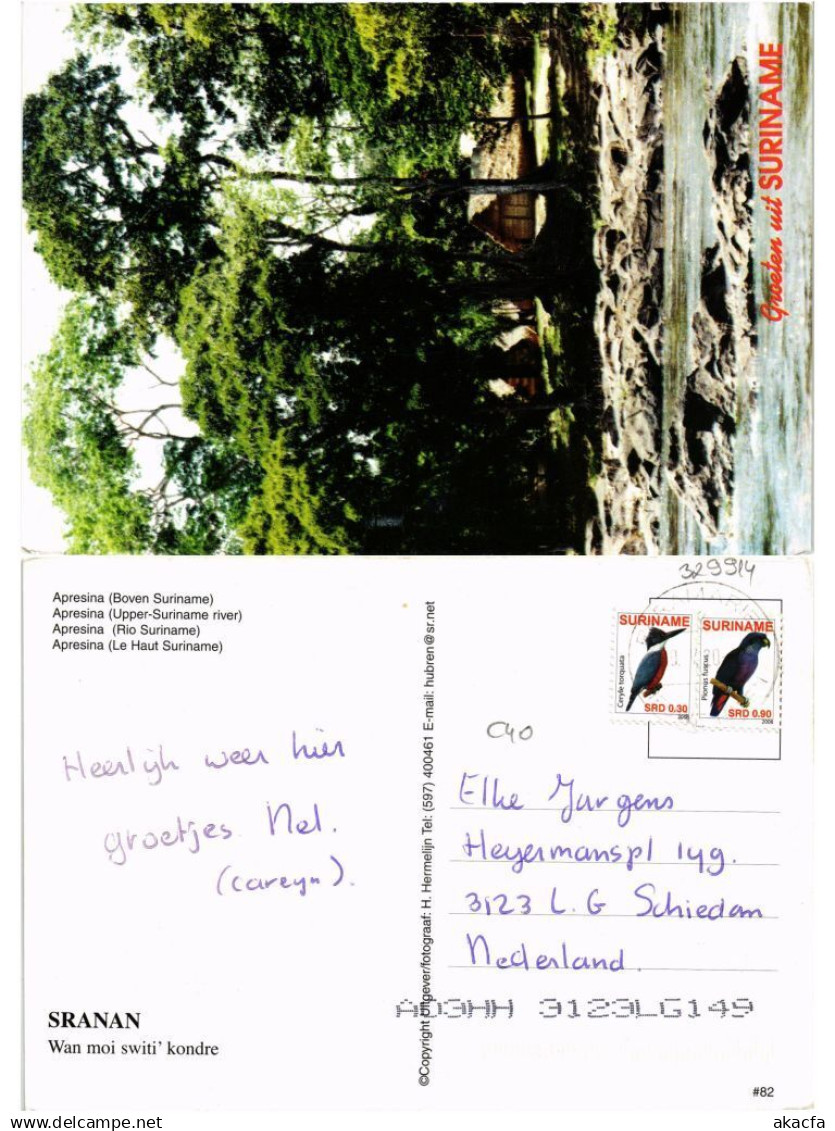 Groeten uit SURINAME
Apresina (Boven Suriname)
Apresina (Upper-Suriname river)
Apresina (Rio Suriname)
Apresina (Le Haut Suriname)
Heerlijk weer hier
groetjes Nel.
(Careyn).
SRANAN
Wan moi switi' kondre
©Copyright Uitgever/fotograaf: H. Hermelijn Tel: (597) 400461 E-mail: hubren@sr.net
329914
SURINAME
Ceryle torquata
SRD 0.30
SURINAME
Pionus fuscus
SRD 0.90
C40
Elke Jurgens
Heyermanspl 149.
3123 L.G Schiedam
Nederland.
3123LG149
#82
www.delcampe.net
akacfa